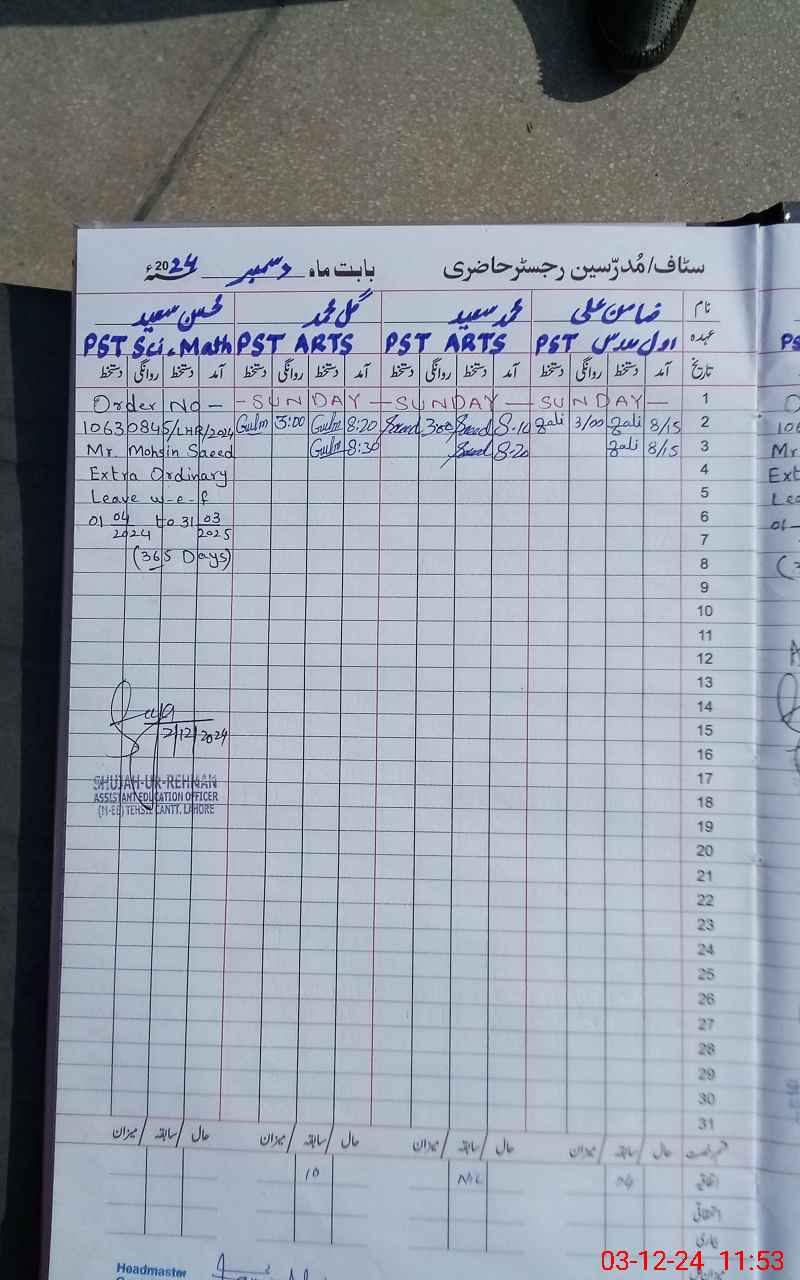 سٹاف/مُدرّسین رجسٹر حاضری بابت ماہ دسمبر 2024ء
نام ضامن علی محمد سعید گل محمد محسن سعید
عہدہ اول مدرس PST PST ARTS PST ARTS PST Sci.Math
تاریخ آمد دستخط روانگی دستخط آمد دستخط روانگی دستخط آمد دستخط روانگی دستخط آمد دستخط روانگی دستخط
Order No - - SUNDAY - SUNDAY - SUNDAY - 1
10630845/LHR/2024 Gulm 3:00 Gulm 8:20 Saeed 3:00 Saeed 8-10 zali 3/00 zali 8/15 2
Mr. Mohsin Saeed Gulm 8:30 Saeed 8-20 zali 8/15 3
Extra Ordinary 4
Leave w-e-f 5
01 04/2024 to 31 03/2025 6
7
(365 Days) 8
9
10
11
12
13
14
2/12/2024 15
16
SHUJAH-UR-REHMAN 17
ASSISTANT EDUCATION OFFICER 18
(M-EE) TEHSIL CANTT. LAHORE
19
20
21
22
23
24
25
26
27
28
29
30
31
حال / سابقہ / میزان حال / سابقہ / میزان حال / سابقہ / میزان حال / سابقہ / میزان
اتفاقیہ 04 NIL 10
Headmaster
03-12-24 11:53